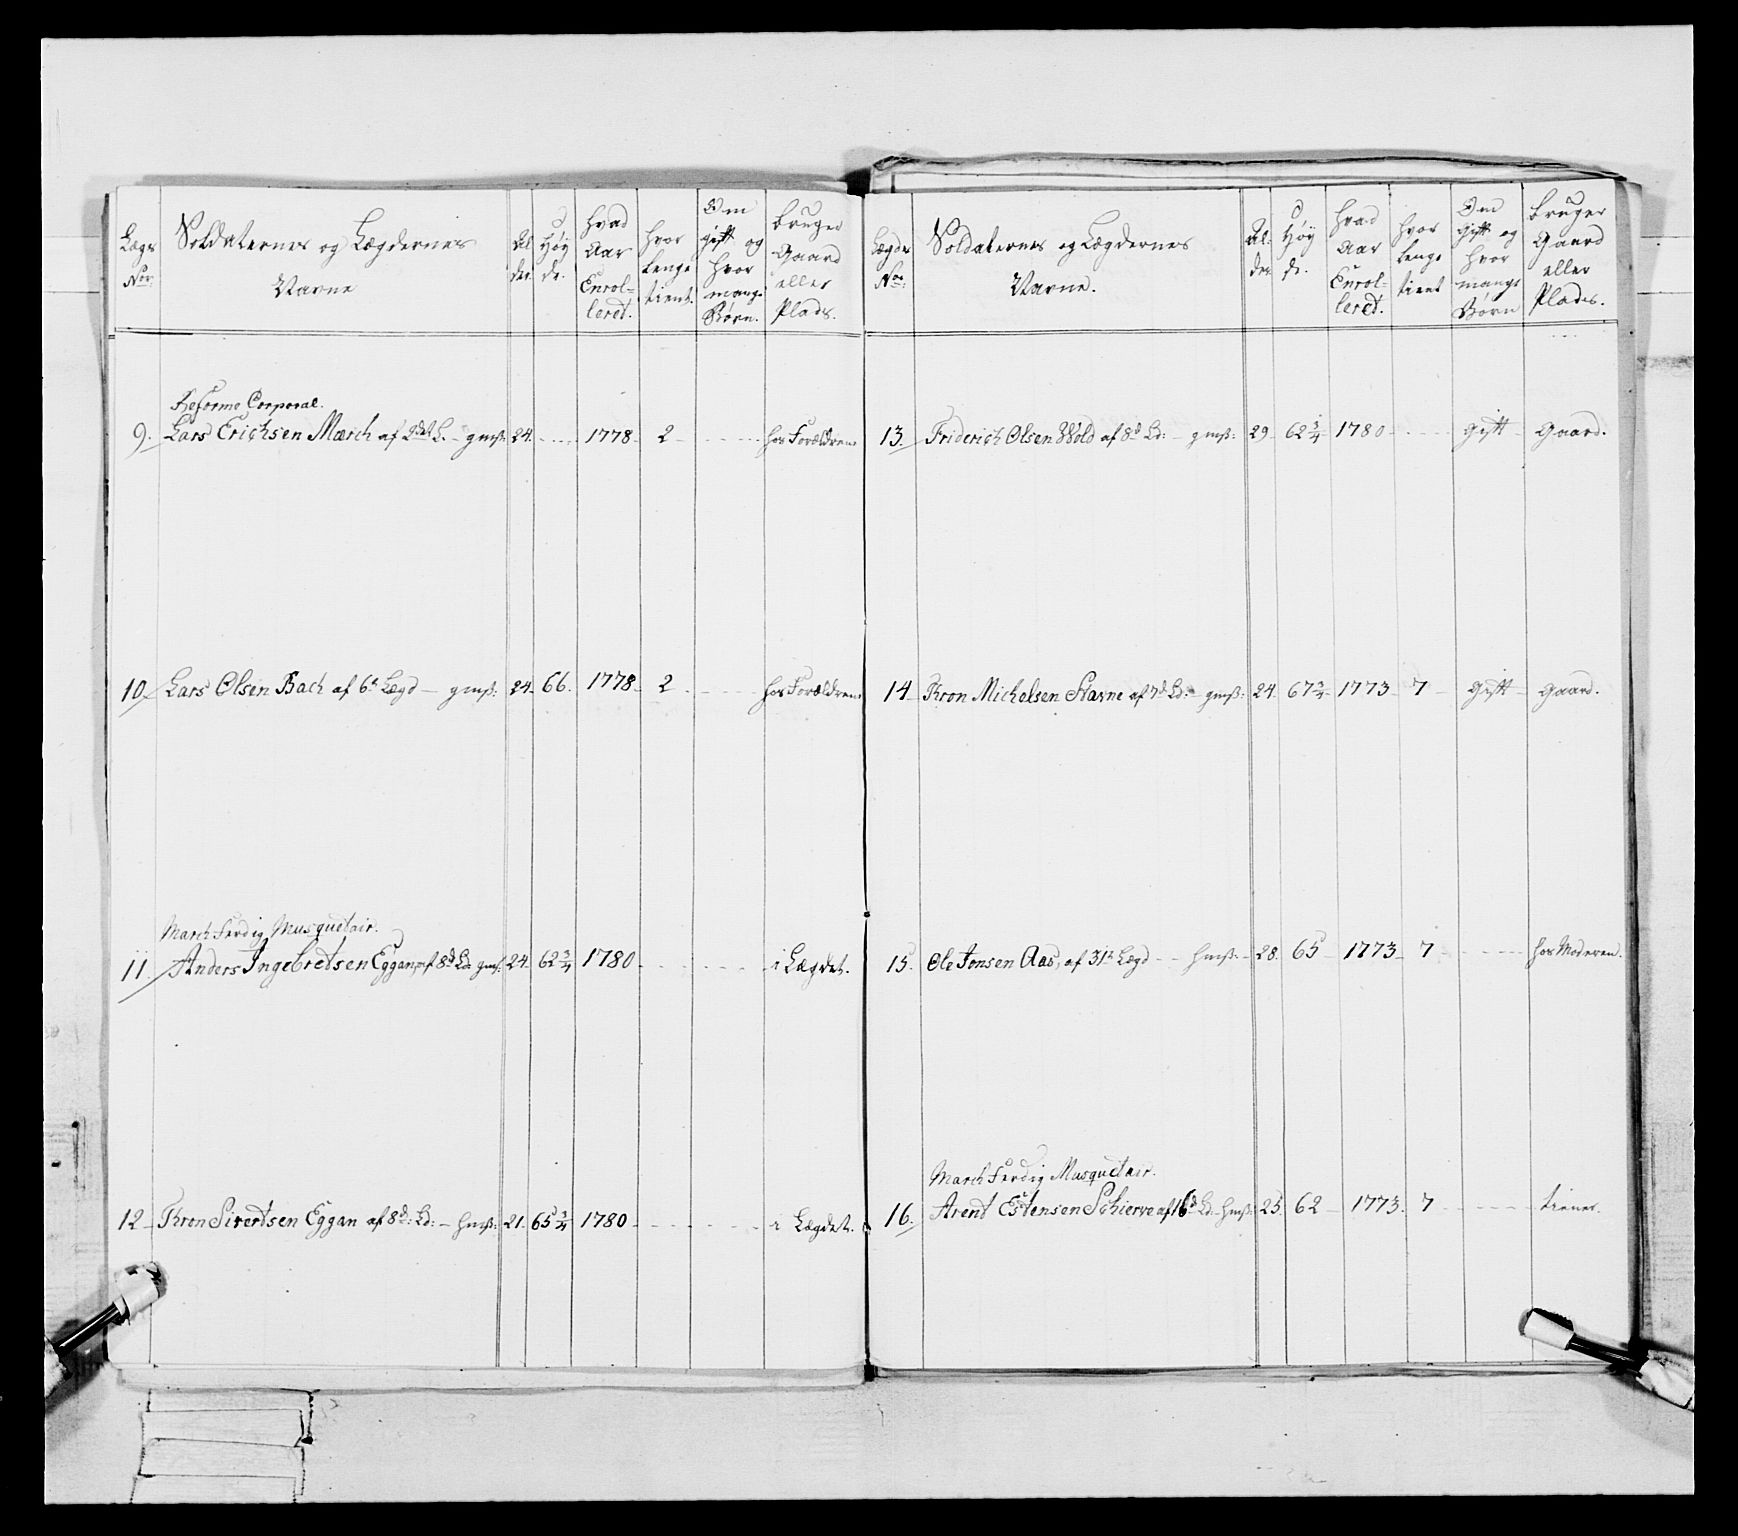 Lægs No:
Soldaternes og Lægdernes Navne
Al der.
Høy de.
Hvad Aar Enrol= leret.
hvor lenge tient.
Om gift og hvor mange Børn.
bruger Gaard eller Plads.
Reforme Corporal.
9. Lars Erichsen Mærch af 2det L. - gmß: 24. 1778 2 hos Forældrene
10 Lars Olsen Bach af 6te Lægd - gmß: 24. 66. 1778. 2 hos Forældrene
March Ferdig Musquetair.
11. Anders Ingebretsen Eggan, af 8d Ld: gmß: 24. 62 3/4 1780 i Lægdet.
12 Kron Sivertsen Eggan af 8de: Ld: - hmß: 21. 65 3/4 1780 i Lægdet.
Lægdes No:
Soldaternes og Lægdernes Navne.
Al. der
Høy de.
Hvad Aar Enrol= leret.
hvor lenge tient
Om Gift og hvor mange Børn
bruger Gaard eller Plads.
13. Friderich Olsen Wold af 8d Ld: - gmß: 29 62 3/4 1780 Gift Gaard.
14. Kron Michelsen Stavne af 7d Ld: - gmß: 24. 67 3/4 1773 7 gift gaard.
15. Ole Jonsen Aas, af 31te Lægd - hmß: 28. 65 1773 7 hos Moderen.
March Ferdig Musquetair.
16. Arent Estensen Schierve af 16d Ld: hmß: 25. 62 1773. 7 tiener.